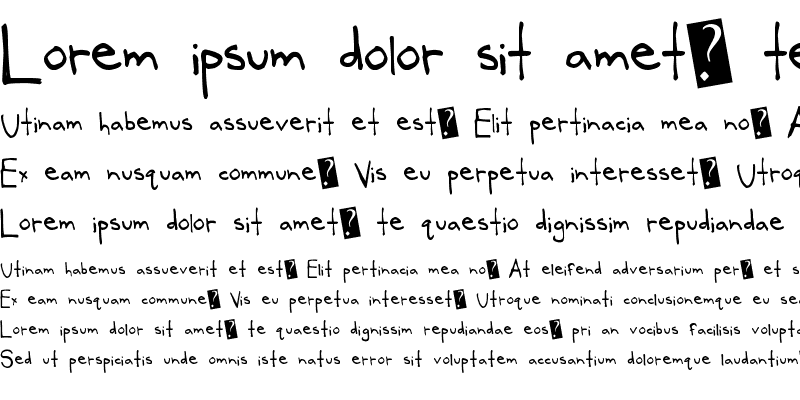 Lorem ipsum dolor sit amet? te
Utinam habemus assueverit et est? Elit pertinacia mea no? A
Ex eam nusquam commune? Vis eu perpetua interesset? Utroq
Lorem ipsum dolor sit amet? te quaestio dignissim repudiandae
Utinam habemus assueverit et est? Elit pertinacia mea no? At eleifend adversarium per? et s
Ex eam nusquam commune? Vis eu perpetua interesset? Utroque nominati conclusionemque eu sea
Lorem ipsum dolor sit amet? te quaestio dignissim repudiandae eos? pri an vocibus facilisis volupta
Sed ut perspiciatis unde omnis iste natus error sit voluptatem accusantium doloremque laudantium